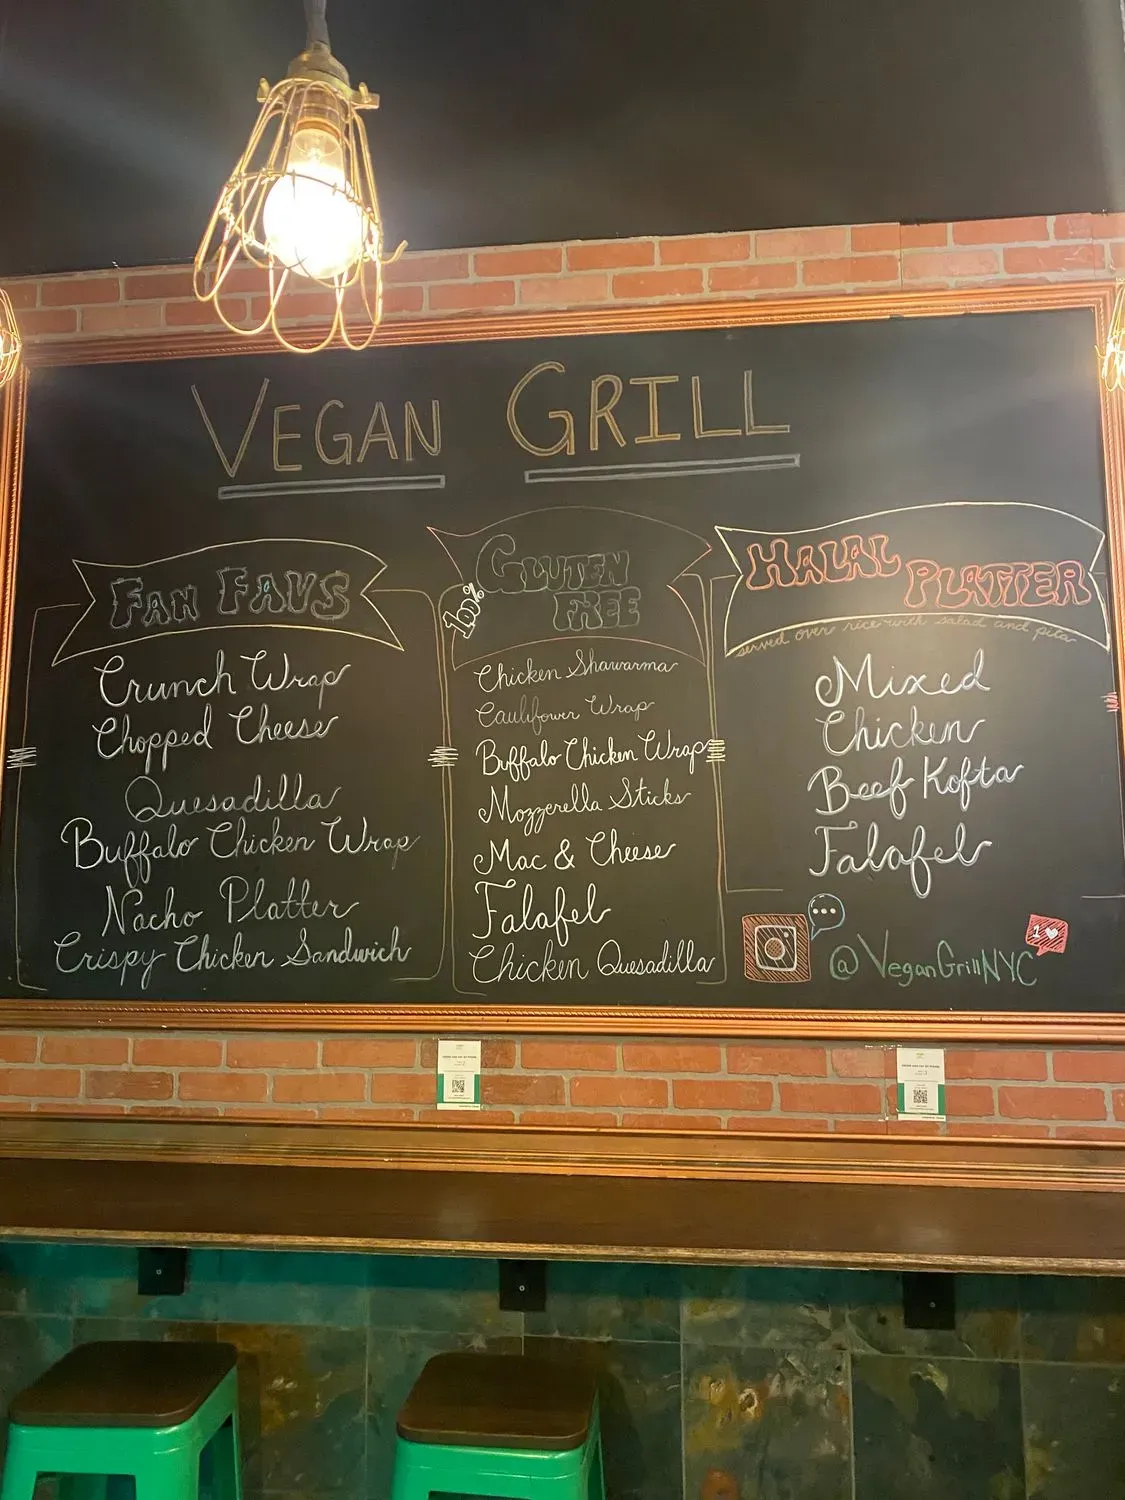 VEGAN GRILL
FAN FAVS
Crunch Wrap
Chopped Cheese
Quesadilla
Buffalo Chicken Wrap
Nacho Platter
Crispy Chicken Sandwich
100% GLUTEN
FREE
Chicken Shawarma
Caulifower Wrap
Buffalo Chicken Wrap
Mozzerella Sticks
Mac & Cheese
Falafel
Chicken Quesadilla
HALAL PLATTER
served over rice with salad and pita
Mixed
Chicken
Beef Kofta
Falafel
@VeganGrillNYC
1